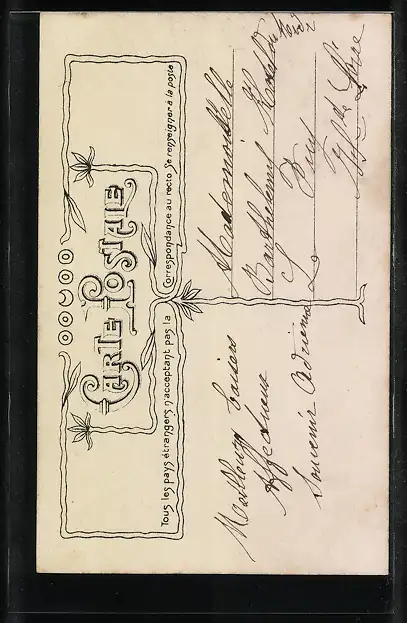 CARTE POSTALE
Tous les pays étrangers n'acceptant pas la Correspondance au recto Se renseigner à la poste
Meilleurs baisers
Affectueux
Souvenir Adrienne
Mademoiselle
Barthélemy Hotel du Nord
Puy
Hte Loire